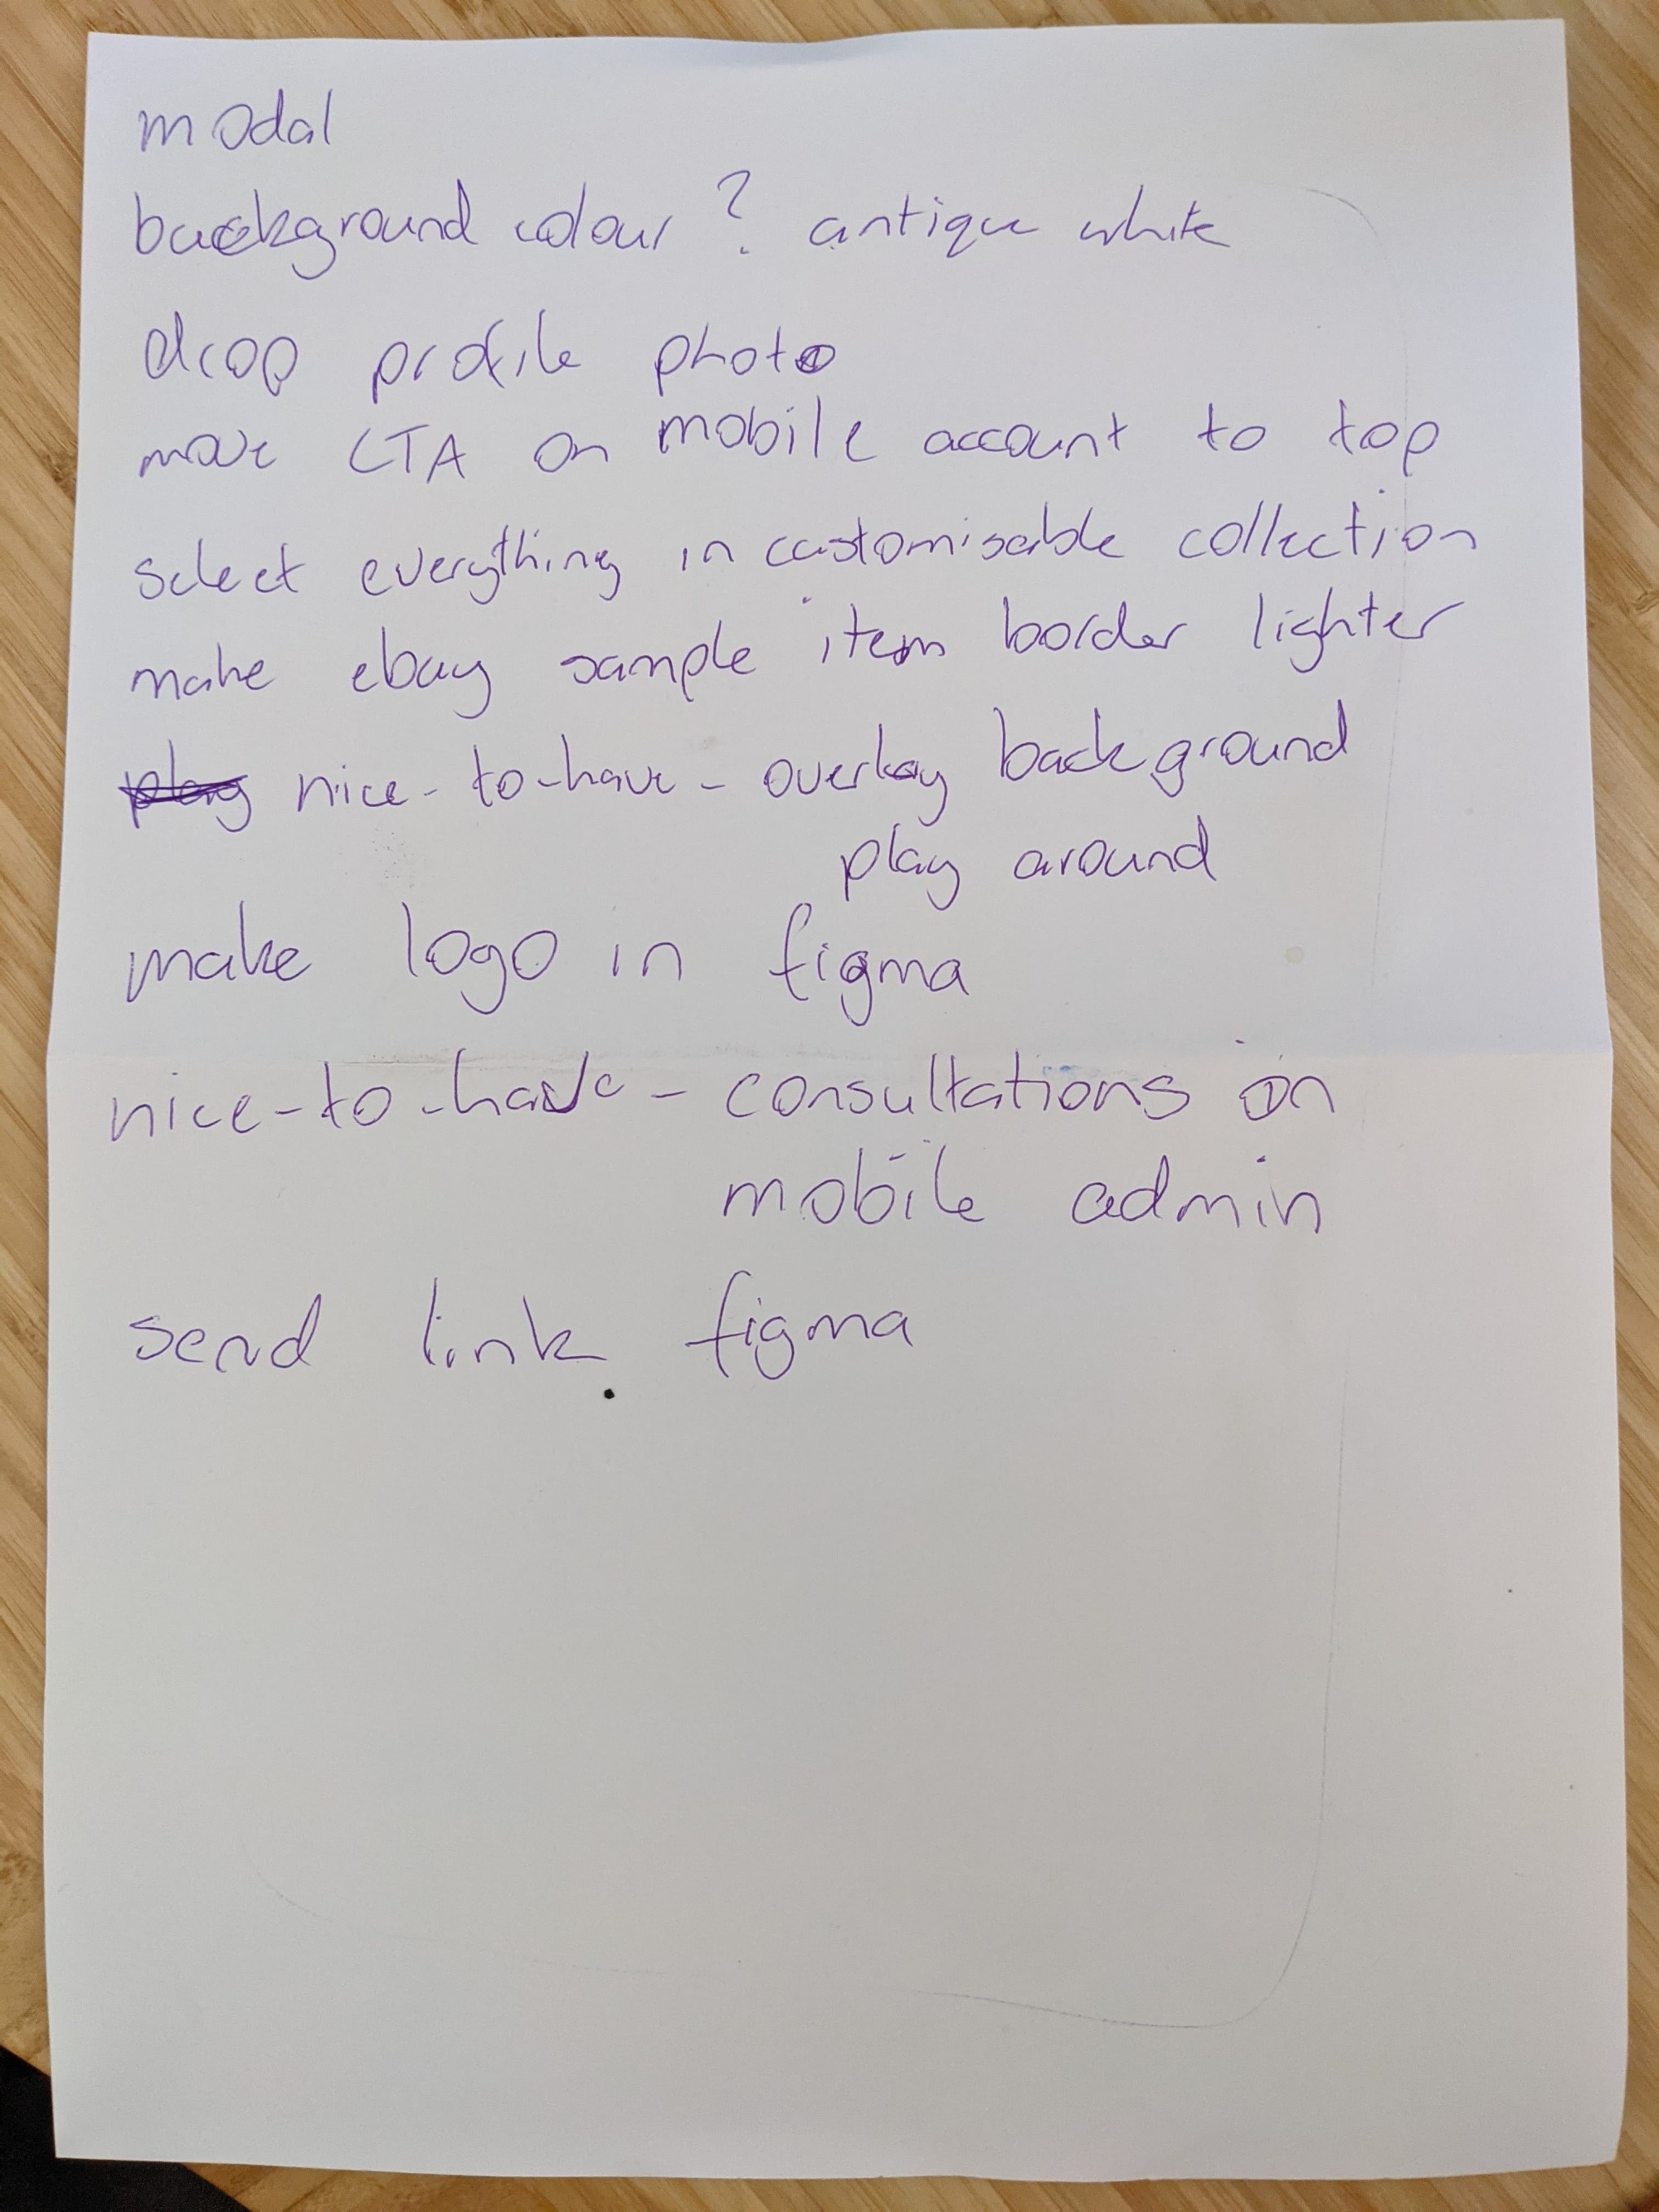 modal
background colour ? antique white
drop profile photo
move CTA on mobile account to top
select everything in customisable collection
make ebay sample item border lighter
play nice-to-have - overlay background
play around
make logo in figma
nice-to-have - consultations on
mobile admin
send link figma